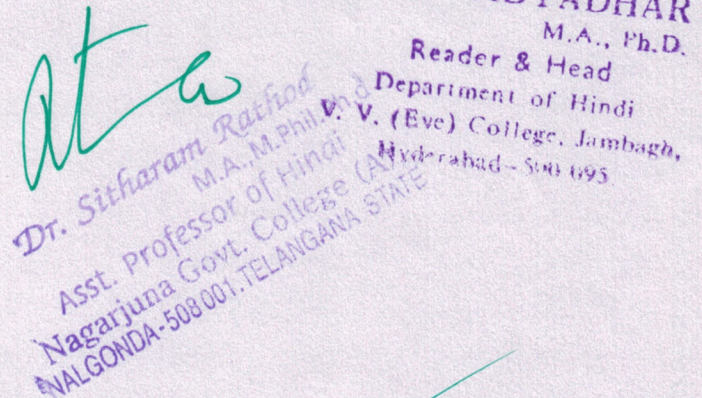 M.A., Ph.D.
Reader & Head
Department of Hindi
V. V. (Eve) College, Jambagh,
Hyderabad-500 095
Dr. Sitharam Rathod
M.A.,M.Phil.Ph.d
Asst. Professor of Hindi
Nagarjuna Govt. College (A)
NALGONDA-508001.TELANGANA STATE